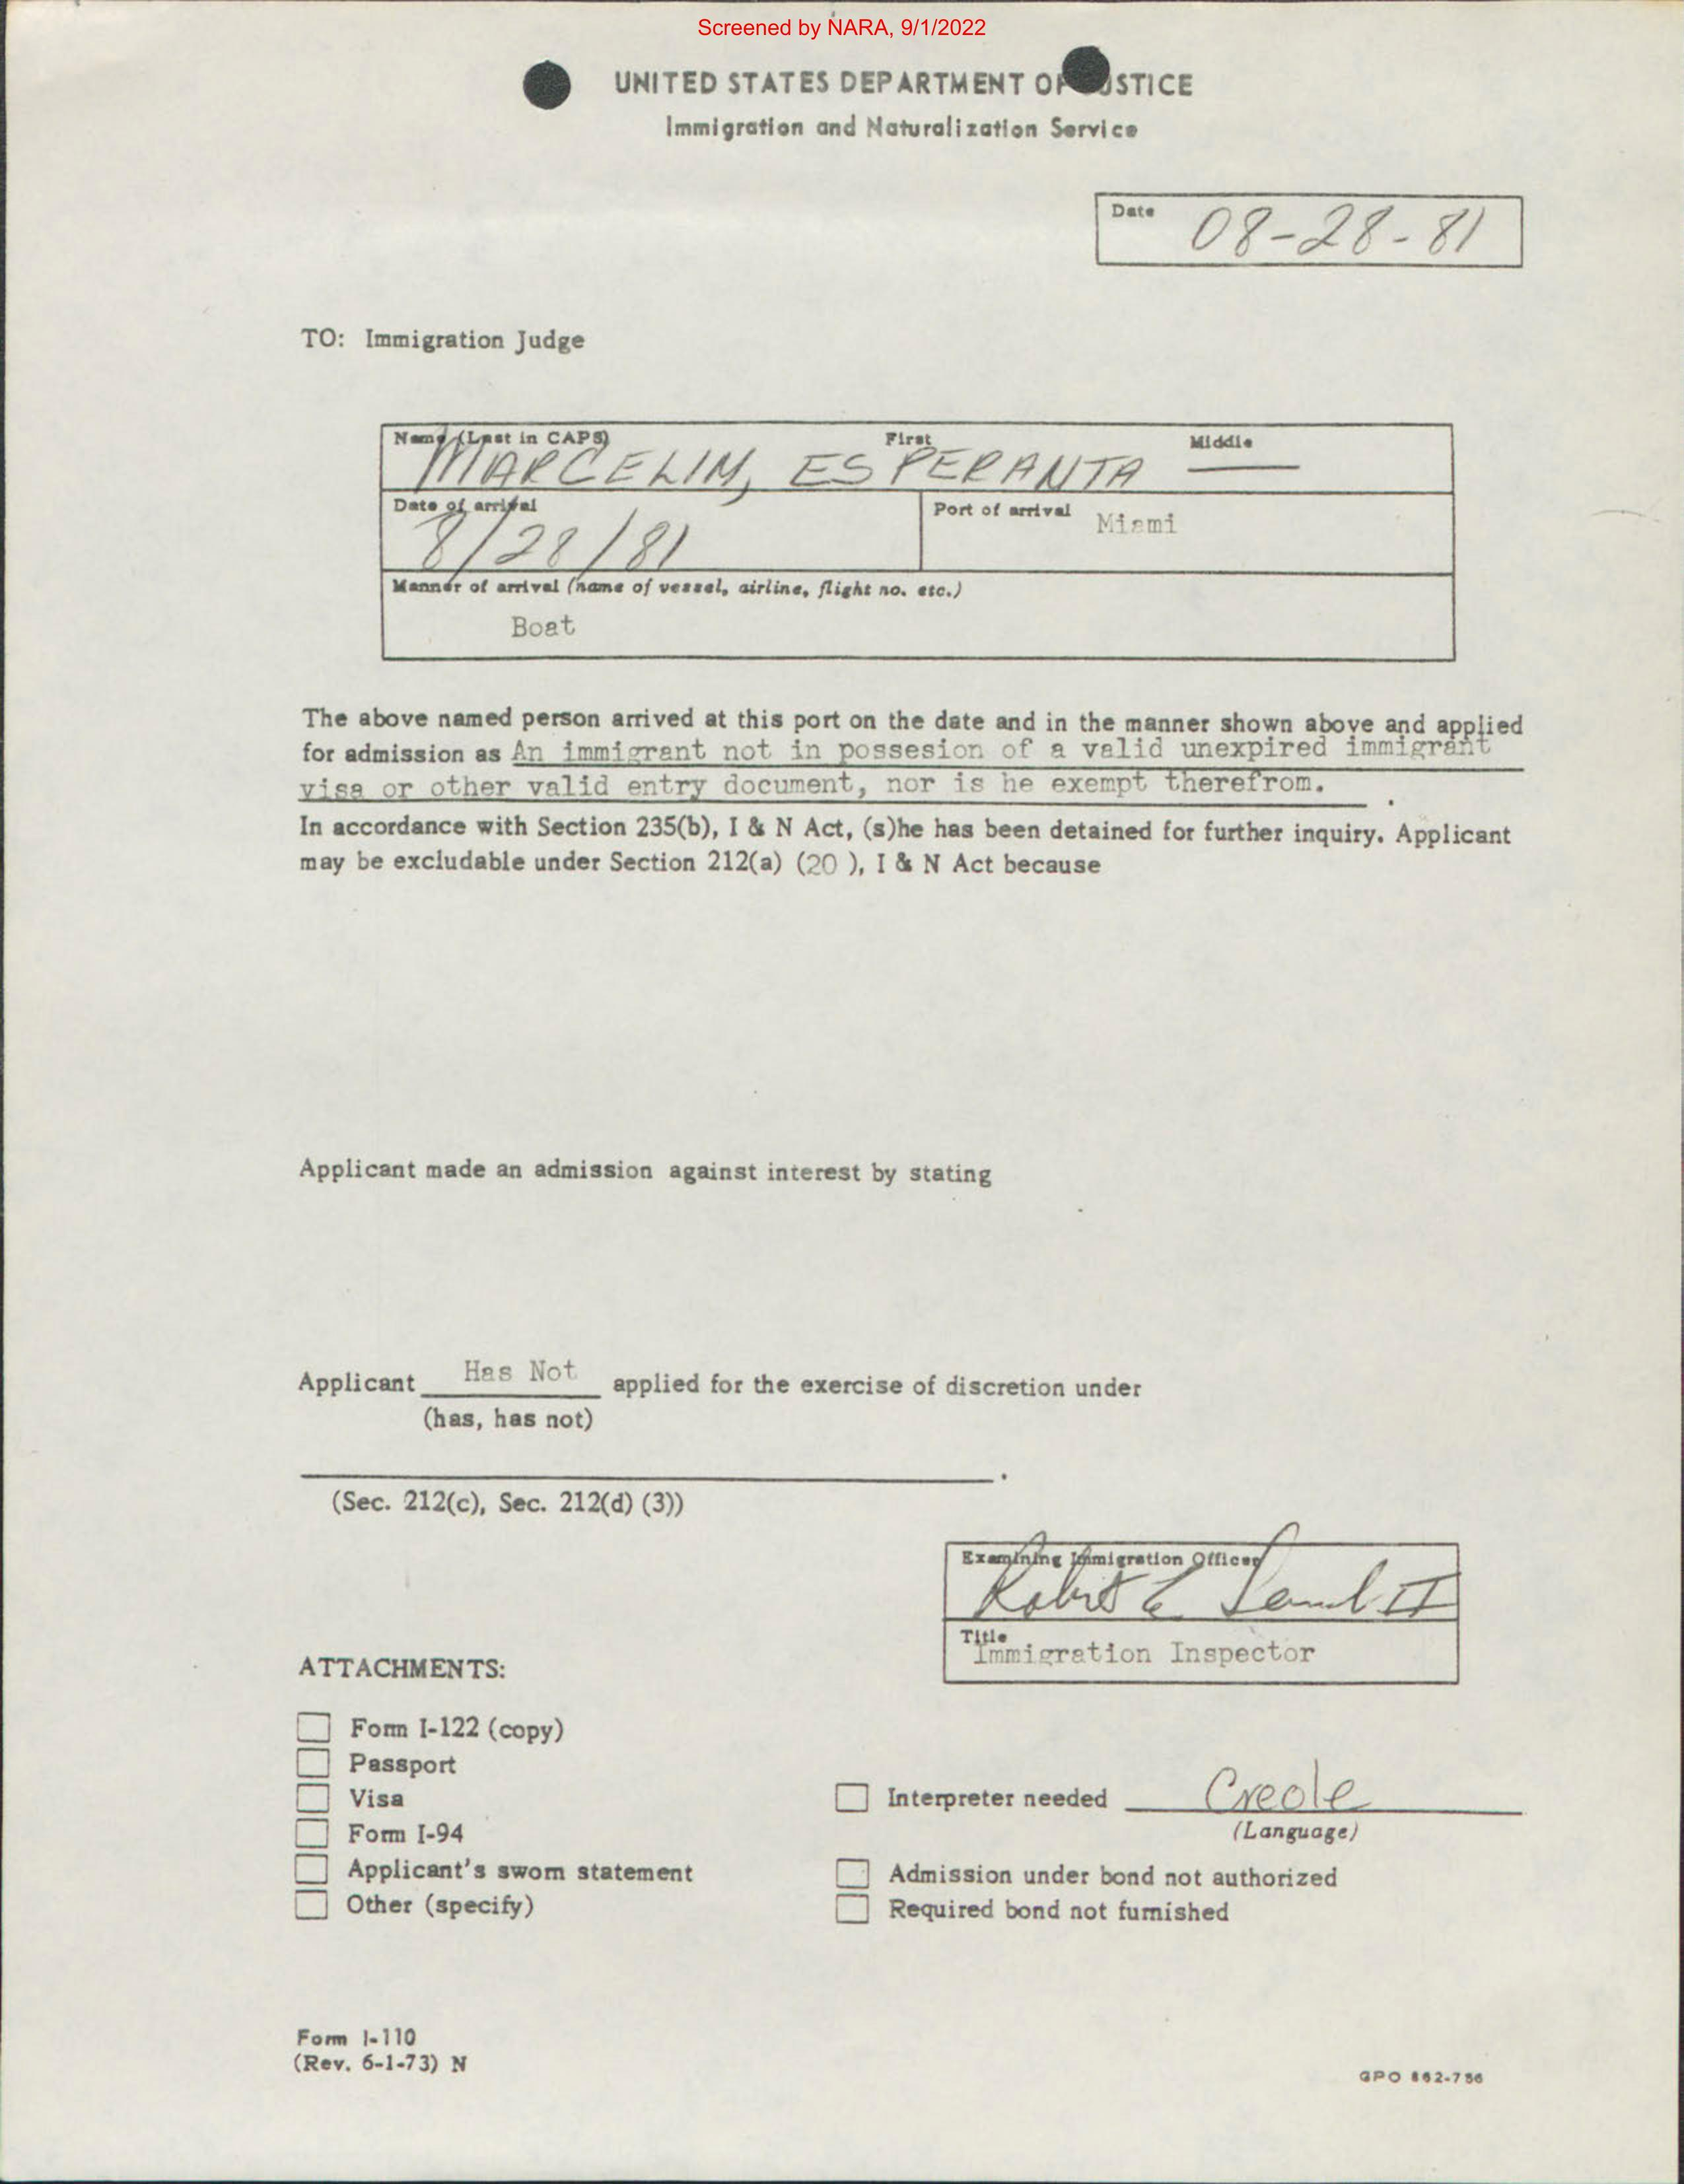 Screened by NARA, 9/1/2022
UNITED STATES DEPARTMENT OF JUSTICE
Immigration and Naturalization Service
Date 08-28-81
TO: Immigration Judge
Name (Last in CAPS) First Middle
MARCELIM, ESPERANTA —
Date of arrival Port of arrival
8/28/81 Miami
Manner of arrival (name of vessel, airline, flight no. etc.)
Boat
The above named person arrived at this port on the date and in the manner shown above and applied
for admission as An immigrant not in possesion of a valid unexpired immigrant
visa or other valid entry document, nor is he exempt therefrom.
In accordance with Section 235(b), I & N Act, (s)he has been detained for further inquiry. Applicant
may be excludable under Section 212(a) (20 ), I & N Act because
Applicant made an admission against interest by stating
Applicant Has Not applied for the exercise of discretion under
(has, has not)
(Sec. 212(c), Sec. 212(d) (3))
Examining Immigration Officer
Robert E II
Title
Immigration Inspector
ATTACHMENTS:
Form I-122 (copy)
Passport
Visa
Interpreter needed Creole
(Language)
Form I-94
Applicant's sworn statement
Admission under bond not authorized
Other (specify)
Required bond not furnished
Form I-110
(Rev. 6-1-73) N
GPO 862-756